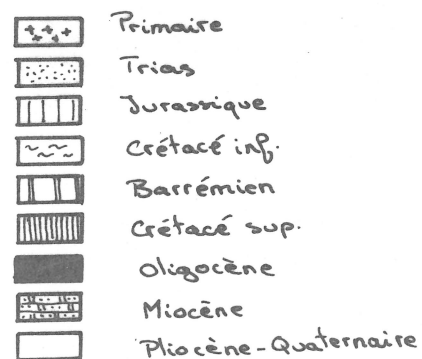 Primaire
Trias
Jurassique
Crétacé inf.
Barrémien
Crétacé sup.
Oligocène
Miocène
Pliocène-Quaternaire